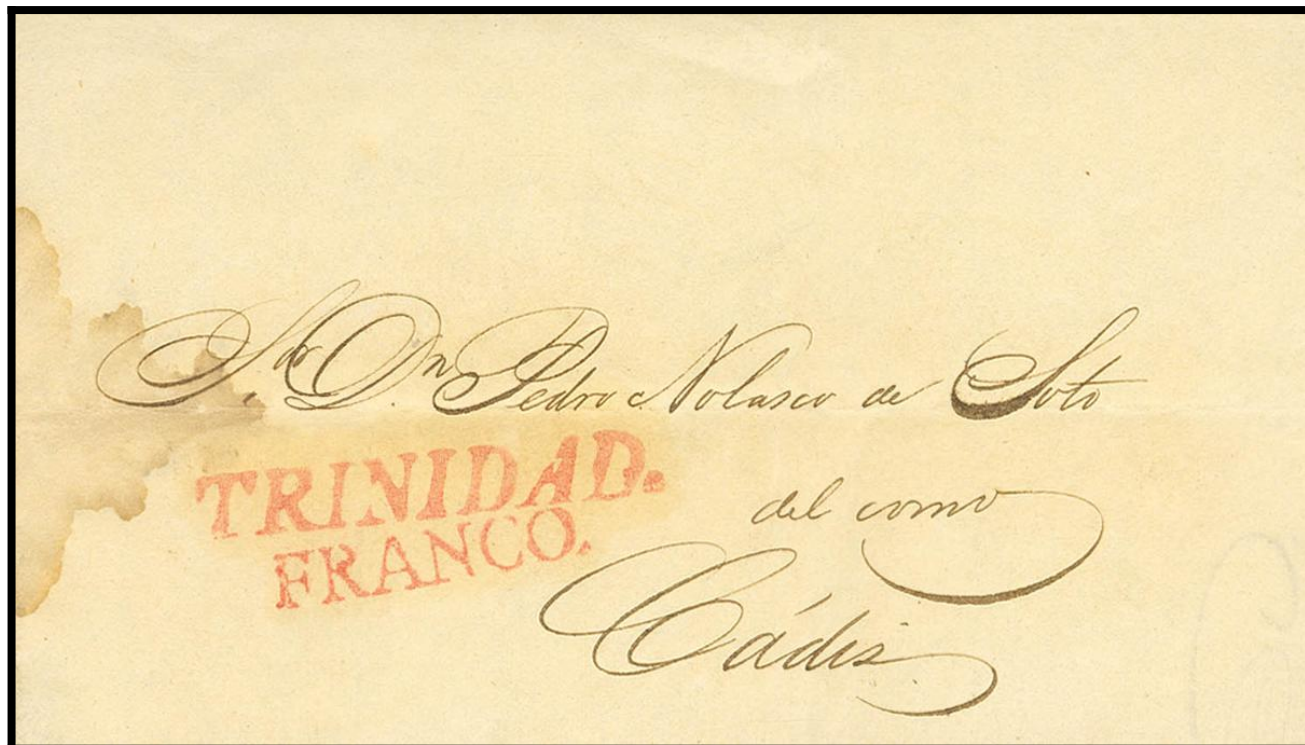 Sor. Dn. Pedro Nolasco de Soto
TRINIDAD.
FRANCO.
del como
Cádiz